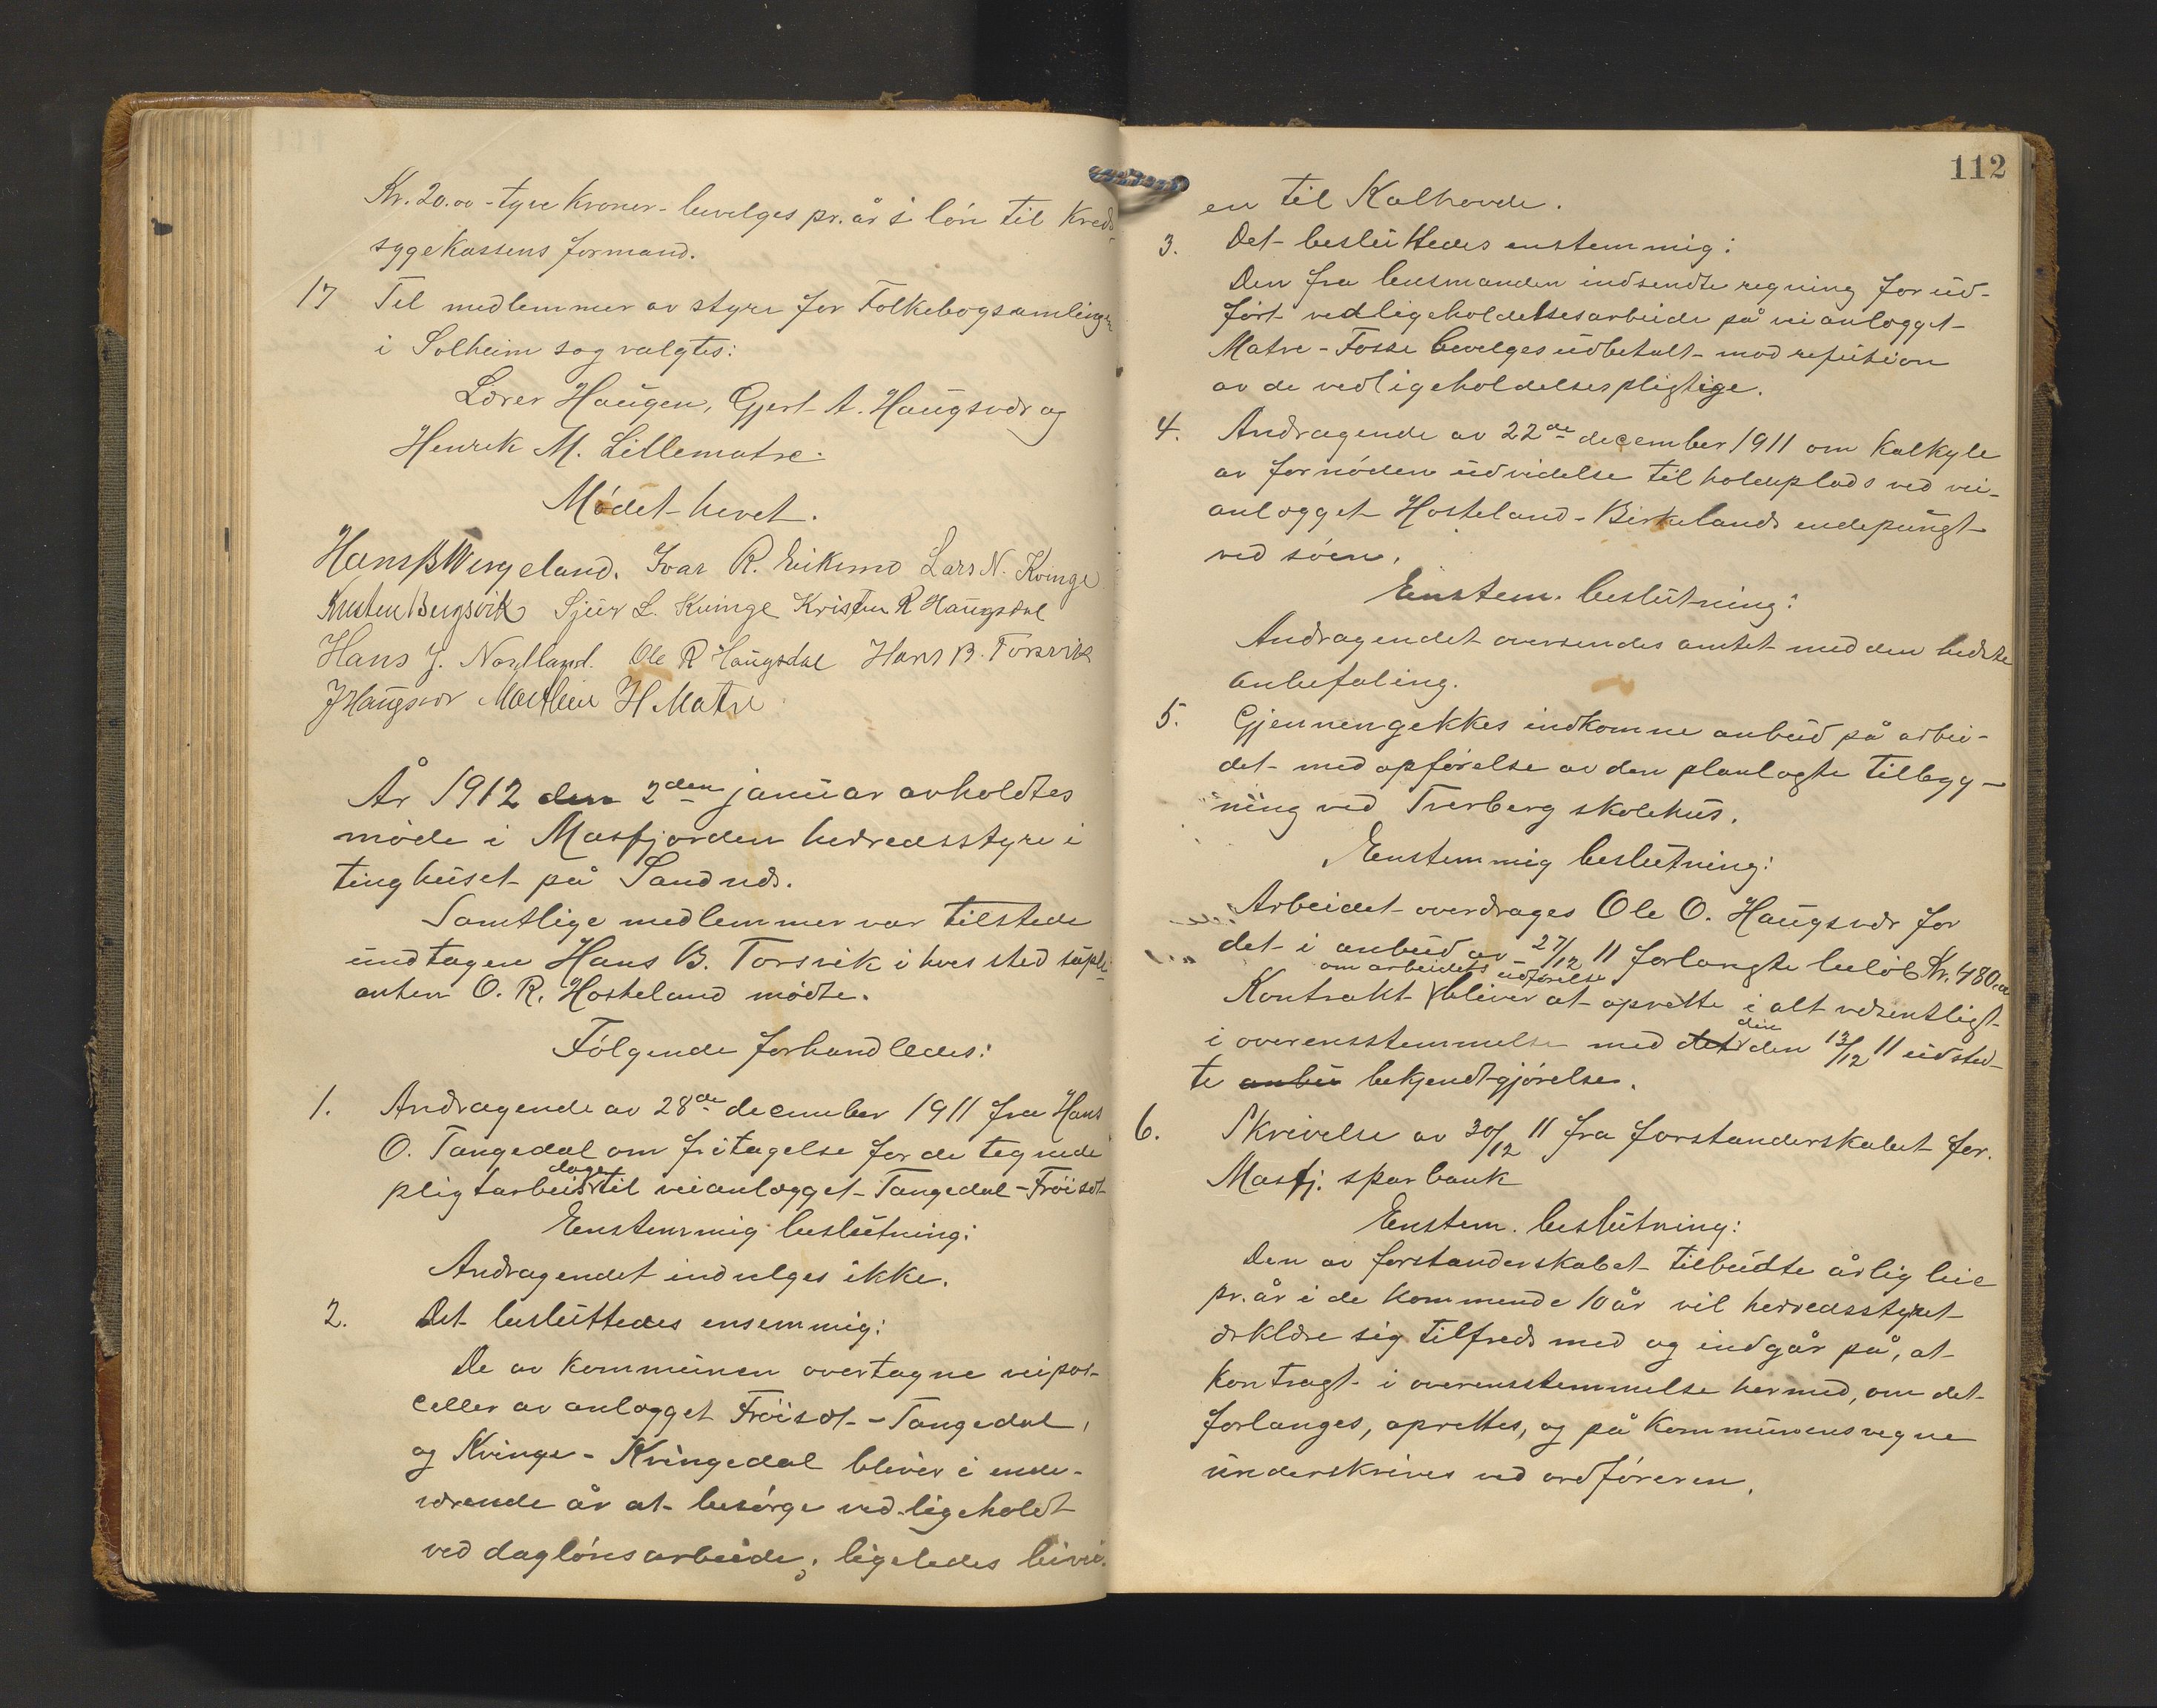 Kr. 20.00 - tyve kroner - bevilges pr. år i løn til kreds-
sygekassens formand.
17 Til medlemmer av styre for Folkebogsamlingen
i Solheim sog valgtes:
Lærer Haugen, Gjert A. Haugsvær og
Henrik M. Lillematre.
Mødet hevet.
Hans B Wergeland. Ivar R. Eikemo Lars N. Kvinge
Kristen Bergsvik Sjur L. Kvinge Kristen R Haugsdal
Hans J. Nordland. Ole R Haugsdal Hans B. Torsvik
J Haugsvær Mathias H Matre
År 1912 den 2den januar avholdtes
møde i Masfjorden herredsstyre i
tinghuset på Sandnæs.
Samtlige medlemmer var tilstede
undtagen Hans B. Torsvik i hves sted supli-
anten O. R. Hosteland mødte.
Følgende forhandledes:
1. Andragende av 28de december 1911 fra Hans
O. Tangedal om fritagelse for de tegnede
dage
pligtarbeids til veianlægget Tangedal - Frøiset
Enstemmig beslutning:
Andragendet indvelges ikke.
2. Det besluttedes ensemmig:
De av kommunen overtagne veipar-
celler av anlægget Frøiset - Tangedal,
og Kvinge - Kvingedal bliver i inde-
værende år at besørge vedligeholdt
ved dagløns arbeide; ligeledes bivei-
112
en til Kalhovde.
3. Det besluttedes enstemmig:
Den fra lensmanden indsendte regning for ud-
ført vedligeholdelsesarbeide på veianlægget
Matre - Fosse bevelges udbetalt mod refusion
av de vedligeholdelsespligtige.
4. Andragende av 22de december 1911 om kalkyle
av fornøden udvidelse til holdeplads ved vei-
anlægget Hosteland - Birkelands endepungt
ved søen.
Enstem. beslutning:
Andragendet oversendes amtet med den bedste
anbefaling.
5. Gjennemgekkes indkomne anbud på arbei-
det med opførelse av den planlagte tilbygg-
ning ved Tverberg skolehus.
Enstemmig beslutning:
Arbeidet overdrages Ole O. Haugsvær for
det i anbud av 27/12 11 forlangte beløb Kr. 480.00
om arbeidets udførelse
Kontrakt bliver at oprette i alt væsentligt
den
i overensstemmelse med det den 13/12 11 udsted-
te anbu bekjendtgjørelse.
6. Skrivelse av 30/12 11 fra forstanderskabet for
Masfj. sparbank
Enstem. beslutning:
Den av forstanderskabet tilbudte årlig leie
pr. år i de kommende 10 år vil herredsstyret
ærklære sig tilfreds med og indgår på, at
kontragt i overensstemmelse hermed, om det
forlanges, oprettes, og på kommunens vegne
underskrives ved ordføreren.